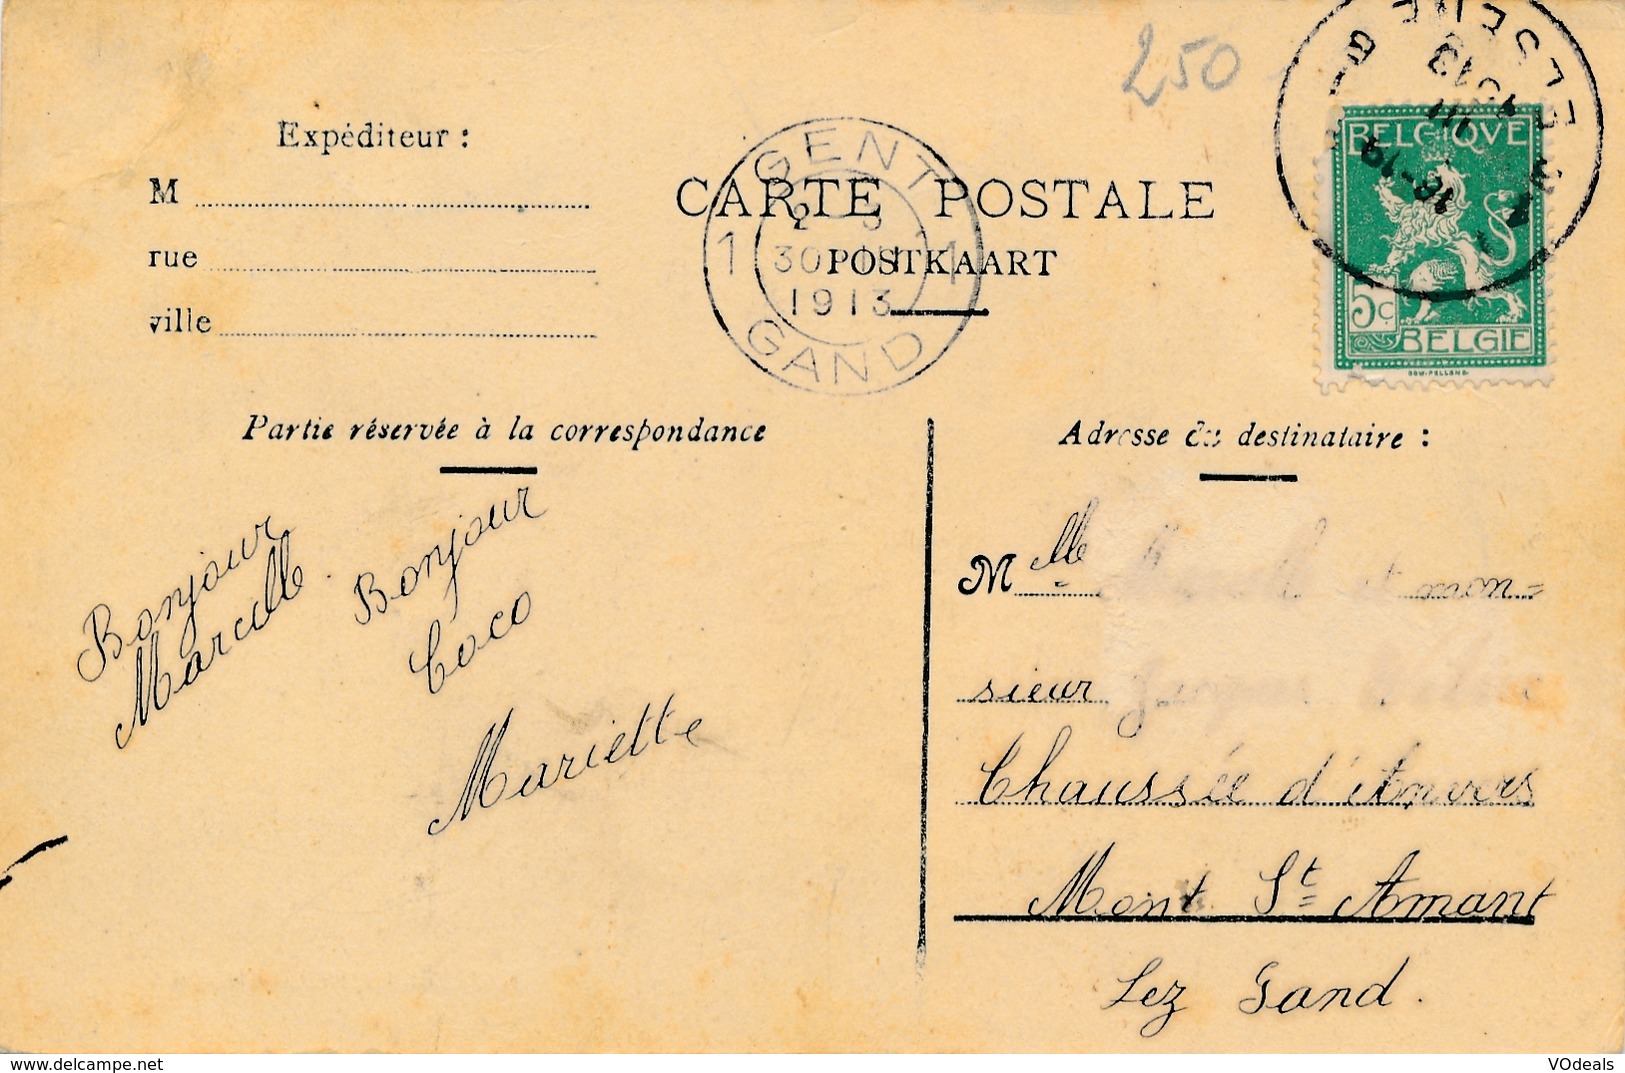 250
Expéditeur :
M
rue
ville
CARTE POSTALE
POSTKAART
GENT
1 1
1913
GAND
1913
BELGIQVE
5c
BELGIE
Partie réservée à la correspondance
Adresse du destinataire :
Bonjour
Marcelle
Bonjour
Coco
Mariette
Mlle et mon=
sieur
Chaussée d'Anvers
Mont St Amant
Lez Gand.
VOdeals